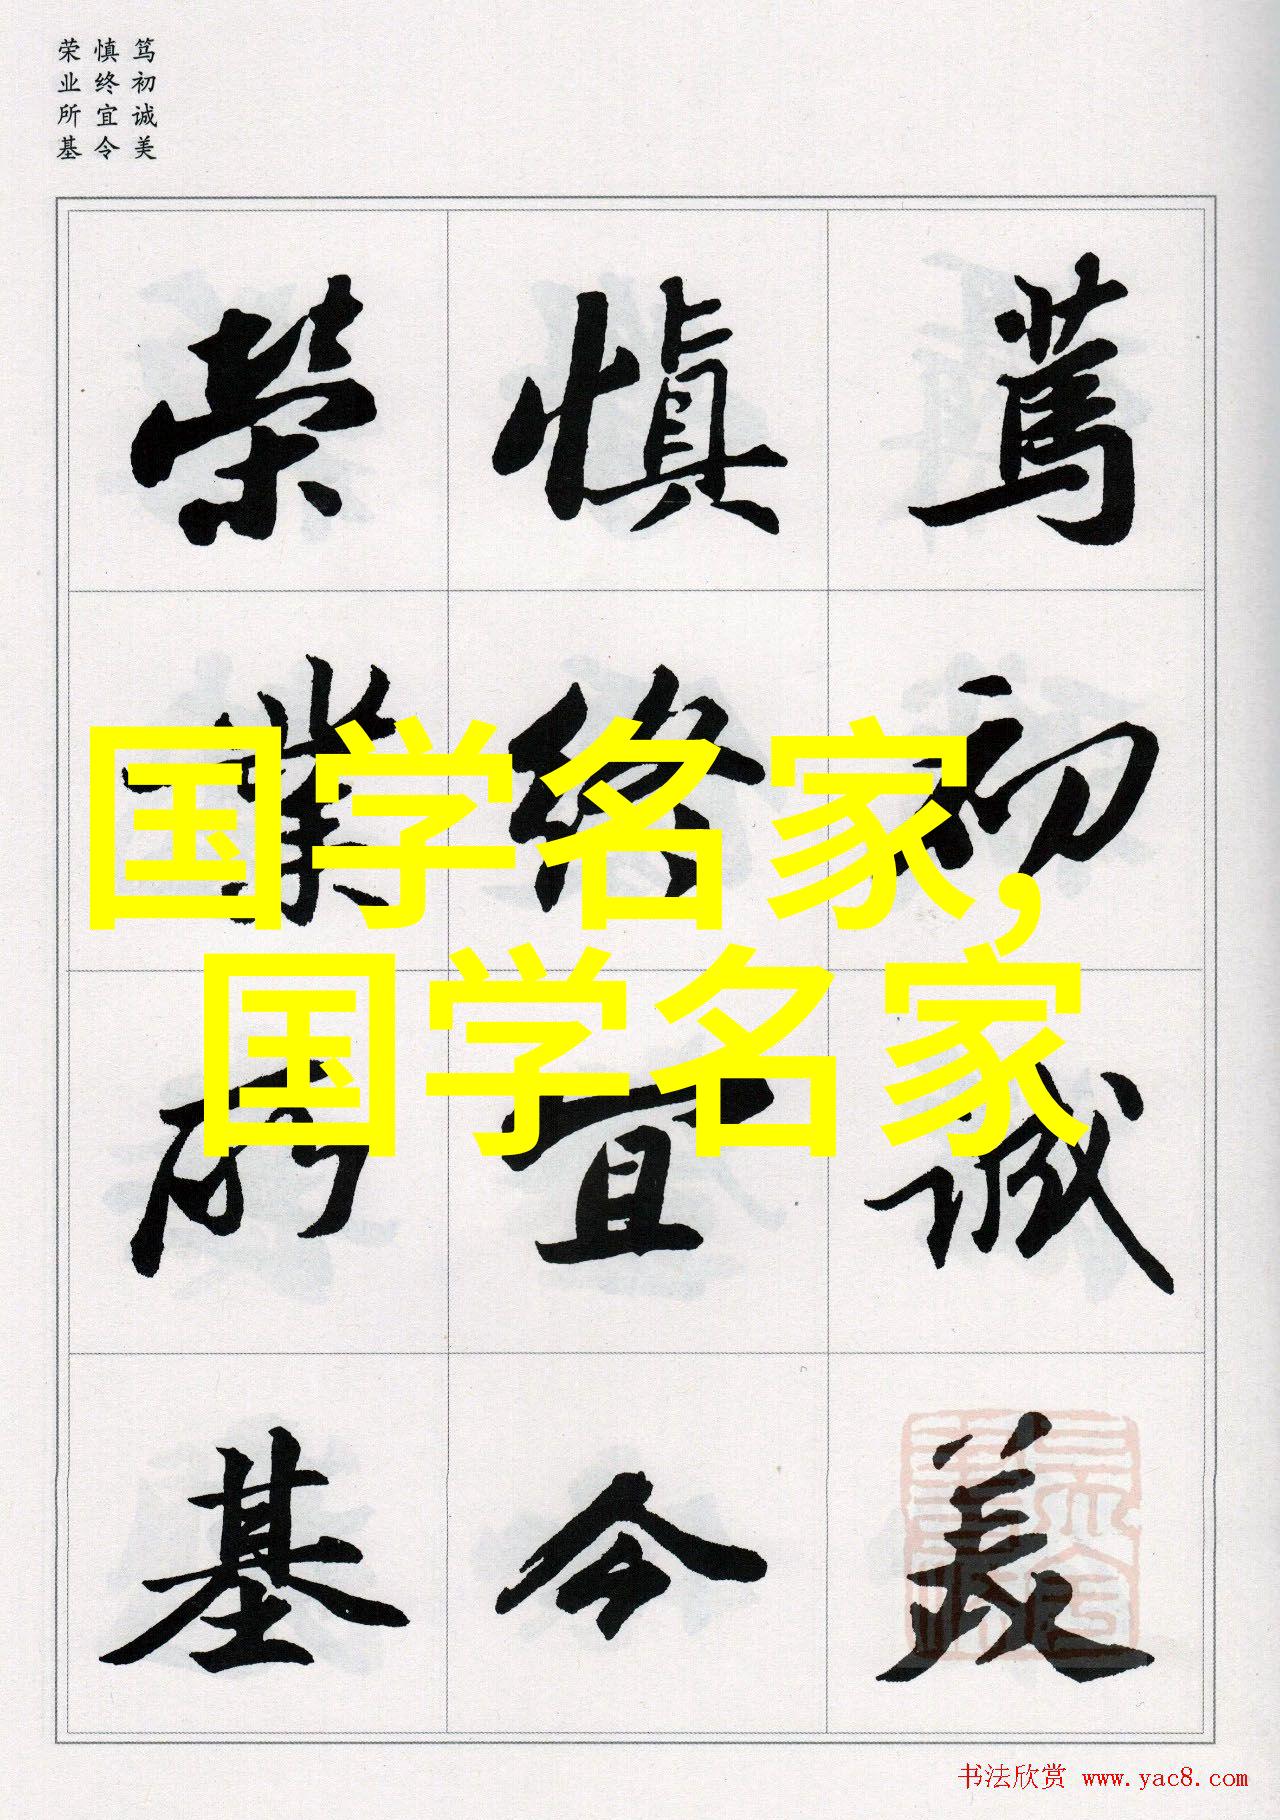 笃初诚美
慎终宜令
荣业所基
篤初誠美
慎終宜令
榮業所基
国学名家，
国学名家
书法欣赏 www.yac8.com